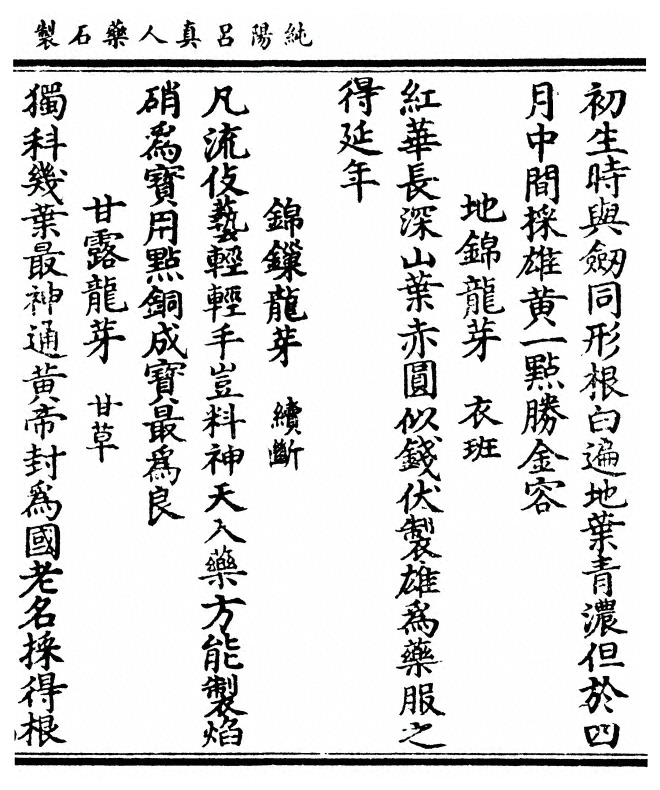 純陽呂真人藥石製
初生時與劒同形根白遍地葉青濃但於四
月中間採雄黃一點勝金容
地錦龍芽 衣班
紅華長深山葉赤圓似錢伏製雄為藥服之
得延年
錦鏁龍芽 續斷
凡流伎藝輕輕手豈料神天入藥方能製焰
硝為寶用點銅成寶最為良
甘露龍芽 甘草
獨科幾葉最神通黃帝封為國老名採得根